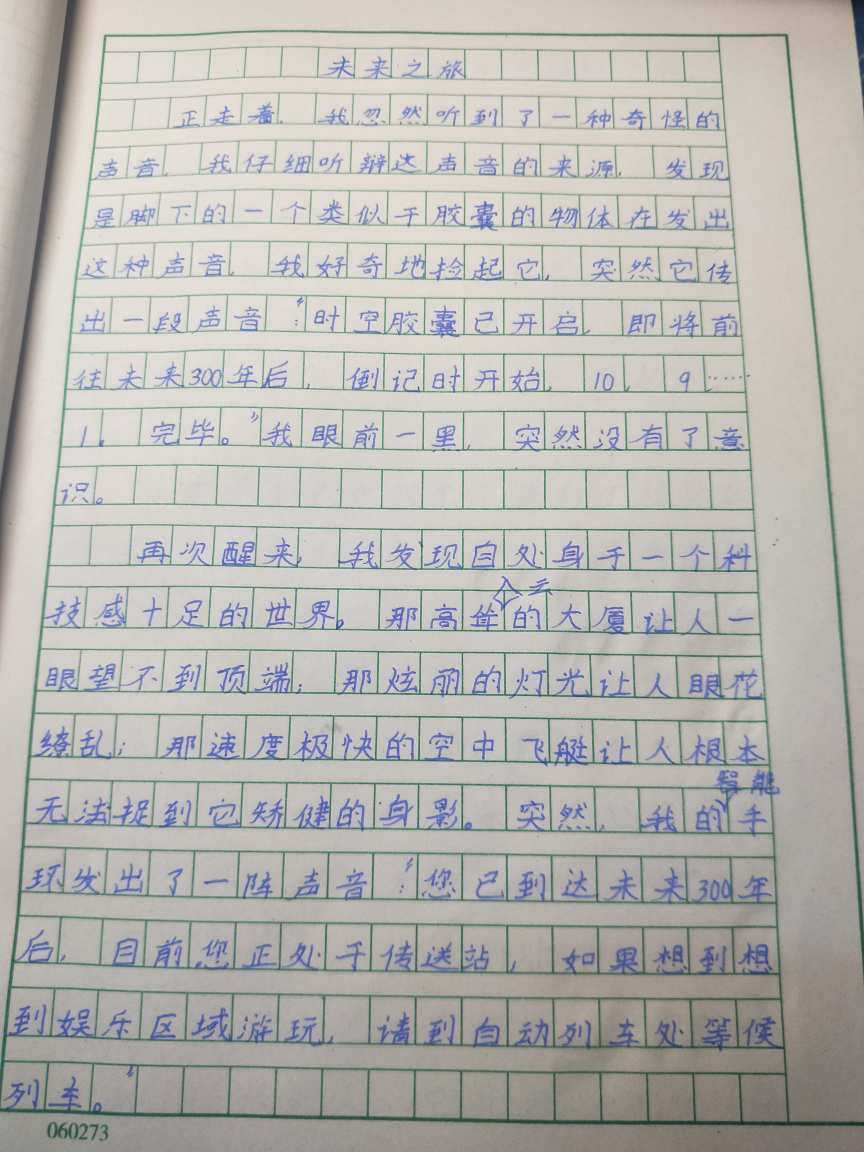 未来之旅
正走着，我忽然听到了一种奇怪的
声音，我仔细听辩这声音的来源，发现
是脚下的一个类似于胶囊的物体在发出
这种声音，我好奇地捡起它，突然它传
出一段声音：“时空胶囊已开启，即将前
往未来300年后，倒记时开始，10，9……
1，完毕。”我眼前一黑，突然没有了意
识。
再次醒来，我发现自处身于一个科
技感十足的世界。那高耸入云的大厦让人一
眼望不到顶端；那炫丽的灯光让人眼花
缭乱；那速度极快的空中飞艇让人根本
无法捉到它矫健的身影。突然，我的智能手
环发出了一阵声音：“您已到达未来300年
后，目前您正处于传送站，如果想到想
到娱乐区域游玩，请到自动列车处等候
列车。”
060273